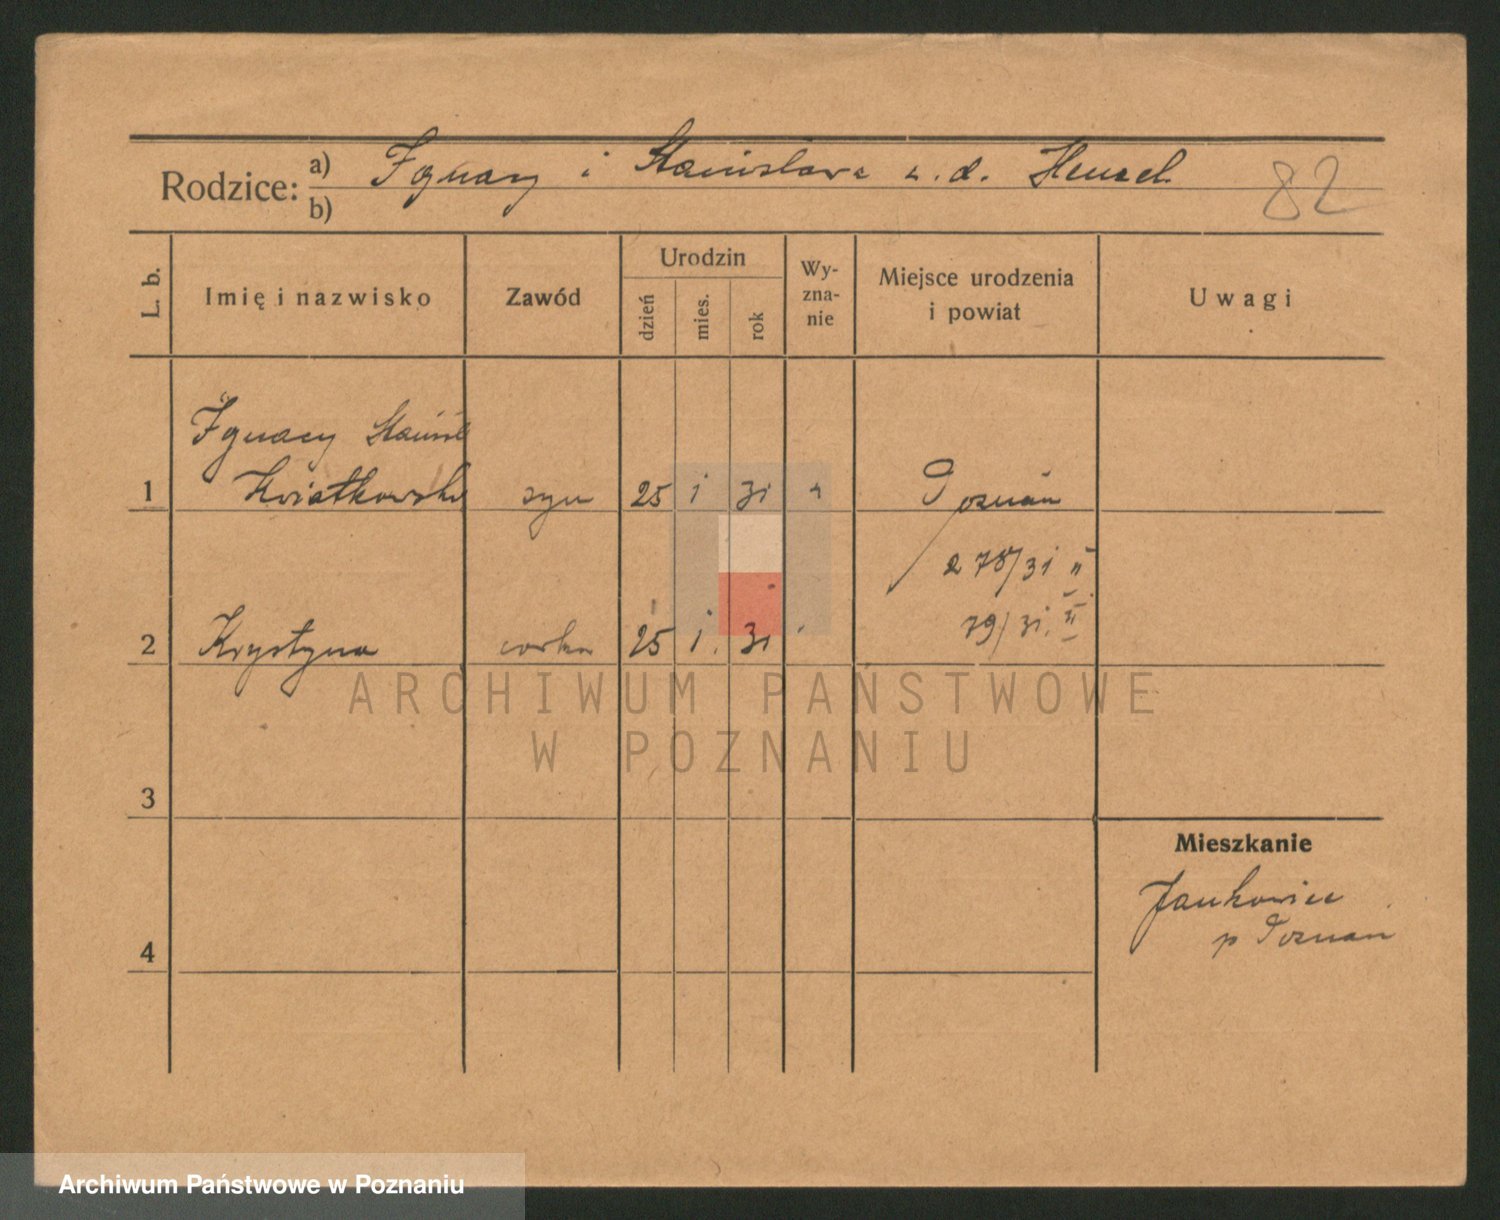 Rodzice: a) Ignacy i Stanisława z. d. Hensel
b)
82
L. b.
Imię i nazwisko
Zawód
Urodzin
dzień
mies.
rok
Wy-
zna-
nie
Miejsce urodzenia
i powiat
Uwagi
Ignacy Stanisł
1 Kwiatkowski syn 25 1 31 Poznań
278/31 II
79/31. VI
2 Krystyna corka 25 1. 31
ARCHIWUM PAŃSTWOWE
W POZNANIU
3
Mieszkanie
Jankowice
p Poznań
4
Archiwum Państwowe w Poznaniu